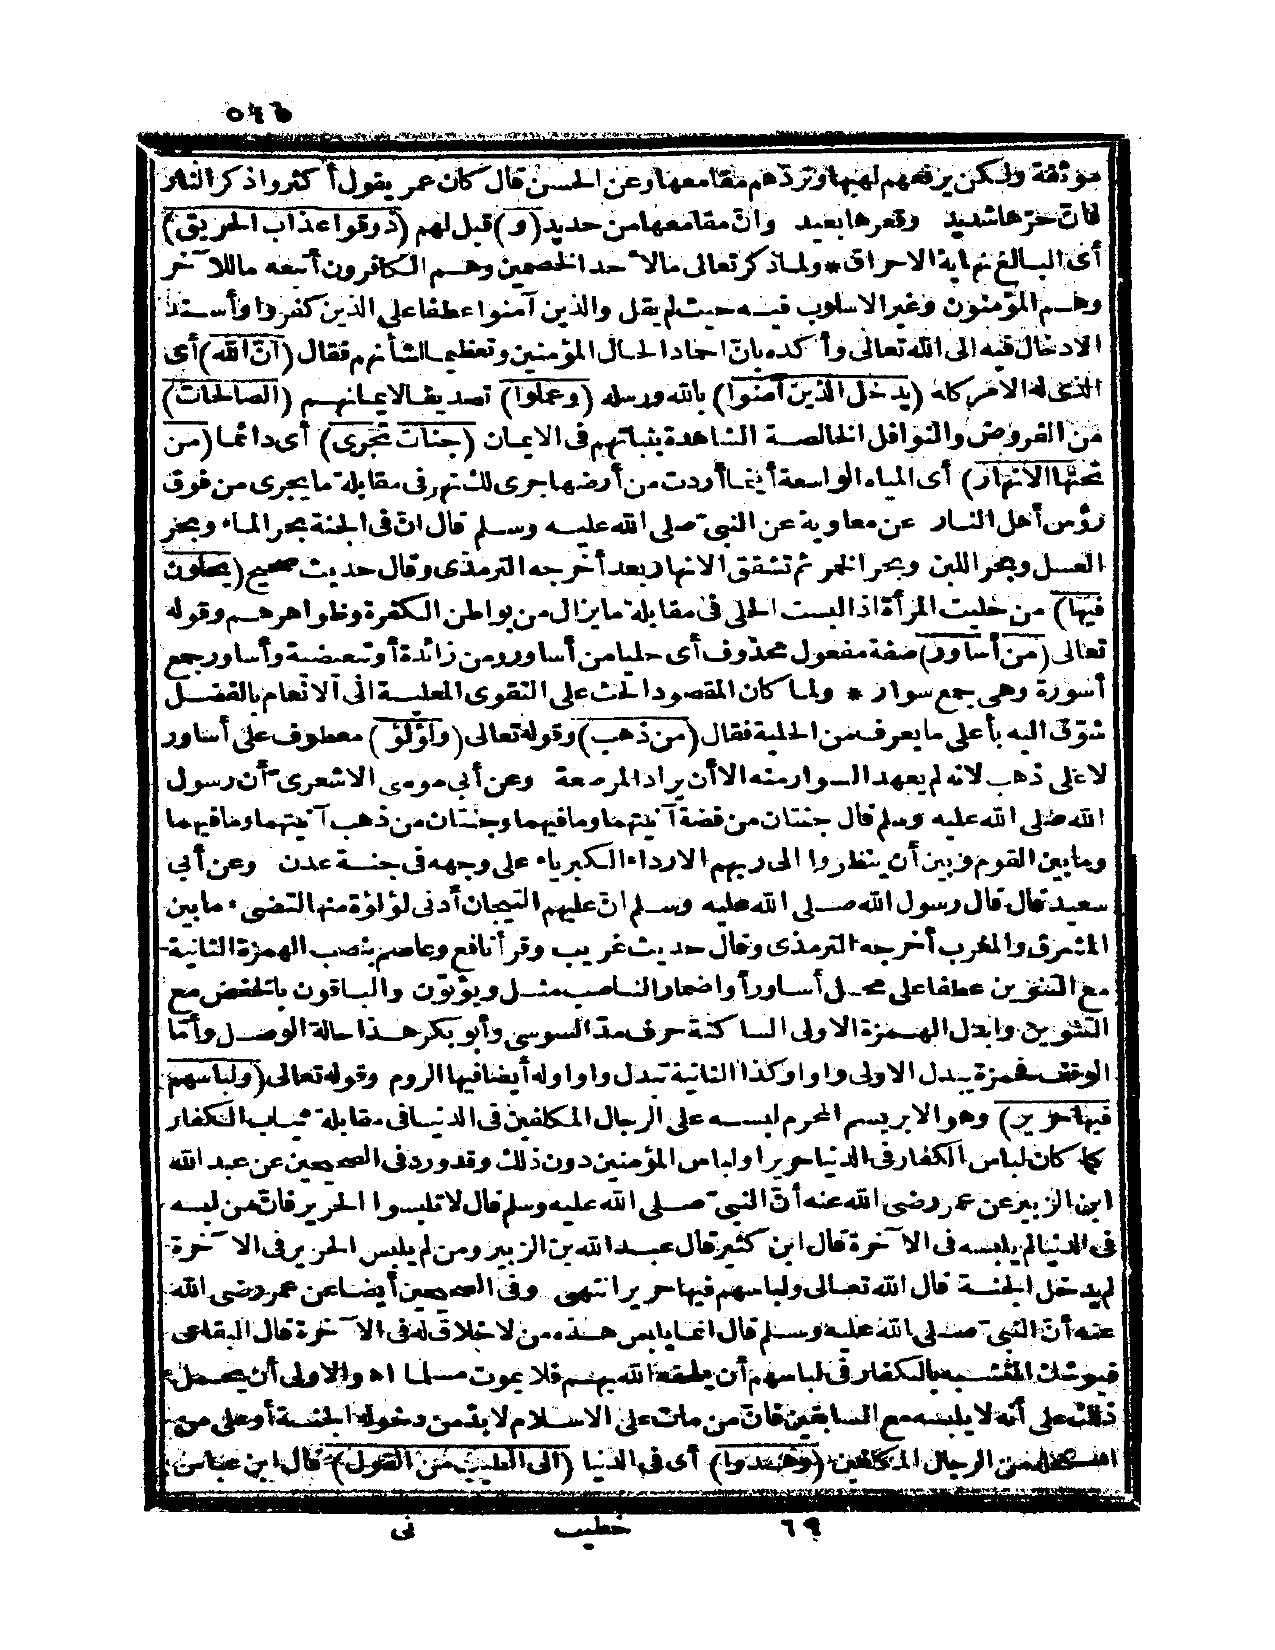 ٥٤٥
موثقة ولكن يرفعهم لهبها وتردهم مقامعها وعن الحسن قال كان عمر يقول أكثروا ذكر النار
فانّ حرّها شديد وقعرها بعيد وانّ مقامعها من حديد (و) قيل لهم (ذوقوا عذاب الحريق)
أى البالغ نهاية الاحراق * ولما ذكر تعالى ما لاحد الخصمين وهم الكافرون أتبعه ما للآخر
وهم المؤمنون وغير الاسلوب فيه حيث لم يقل والذين آمنوا عطفا على الذين كفروا وأسند
الادخال فيه الى الله تعالى وأكده بانّ احمادا لحال المؤمنين وتعظيما لشأنهم فقال (انّ الله) أى
الذى له الامر كله (يدخل الذين آمنوا) بالله ورسله (وعملوا) تصديقا لايمانهم (الصالحات)
من الفروض والنوافل الخالصة الشاهدة بثباتهم فى الايمان (جنات تجرى) أى دائما (من
تحتها الانهار) أى المياه الواسعة أينما أردت من أرضها جرى لك نهر فى مقابلة ما يجرى من فوق
رؤس أهل النار عن معاوية عن النبىّ صلى الله عليه وسلم قال انّ فى الجنة بحر الماء وبحر
العسل وبحر اللبن وبحر الخمر ثم تشقق الانهار بعد أخرجه الترمذى وقال حديث صحيح (يحلون
فيها) من حليت المرأة اذا لبست الحلى فى مقابلة ما يزال من بواطن الكفرة وظواهرهم وقوله
تعالى (من أساور) صفة مفعول محذوف أى حليا من أساور ومن زائدة أو تبعيضية وأساور جمع
أسورة وهى جمع سوار * ولما كان المقصود الحث على التقوى المعلية الى الانعام بالفضل
شوّق اليه بأعلى ما يعرف من الحلية فقال (من ذهب) وقوله تعالى (ولؤلؤ) معطوف على أساور
لا على ذهب لانه لم يعهد السوار منه الا أن يراد المرصعة وعن أبى موسى الاشعرى أن رسول
الله صلى الله عليه وسلم قال جنتان من فضة آنيتهما وما فيهما وجنتان من ذهب آنيتهما وما فيهما
وما بين القوم وبين أن ينظروا الى ربهم الا رداء الكبرياء على وجهه فى جنة عدن وعن أبى
سعيد قال قال رسول الله صلى الله عليه وسلم انّ عليهم التيجان أدنى لؤلؤة منها لتضىء ما بين
المشرق والمغرب أخرجه الترمذى وقال حديث غريب وقرأ نافع وعاصم بنصب الهمزة الثانية
مع التنوين عطفا على محل أساور أو اضمار الناصب مثل ويؤتون والباقون بالخفض مع
التنوين وابدل الهمزة الاولى الساكنة حرف مدّ السوسى وأبو بكر هذا حالة الوصل وأمّا
الوقف فحمزة يبدل الاولى واوا وكذا الثانية تبدل واوا وله أيضا فيها الروم وقوله تعالى (ولباسهم
فيها حرير) وهو الابريسم المحرم لبسه على الرجال المكلفين فى الدنيا فى مقابلة ثياب الكفار
كما كان لباس الكفار فى الدنيا حريرا ولباس المؤمنين دون ذلك وقد ورد فى الصحيحين عن عبد الله
ابن الزبير عن عمر رضى الله عنه أنّ النبىّ صلى الله عليه وسلم قال لا تلبسوا الحرير فانّ من لبسه
فى الدنيا لم يلبسه فى الآخرة قال ابن كثير قال عبد الله بن الزبير ومن لم يلبس الحرير فى الآخرة
لم يدخل الجنة قال الله تعالى ولباسهم فيها حرير انتهى وفى الصحيحين أيضا عن عمر رضى الله
عنه أنّ النبىّ صلى الله عليه وسلم قال انما يلبس هذه من لا خلاق له فى الآخرة قال البقاعى
فيوشك المتشبه بالكفار فى لباسهم أن يلحقه الله بهم فلا يموت مسلما اه والاولى أن يحمل
ذلك على أنه لا يلبسه مع السابقين فانّ من مات على الاسلام لا بدّ من دخوله الجنة أو على من
استحله من الرجال المكلفين (وهدوا) أى فى الدنيا (الى الطيب من القول) قال ابن عباس
٦٩ خطيب نى